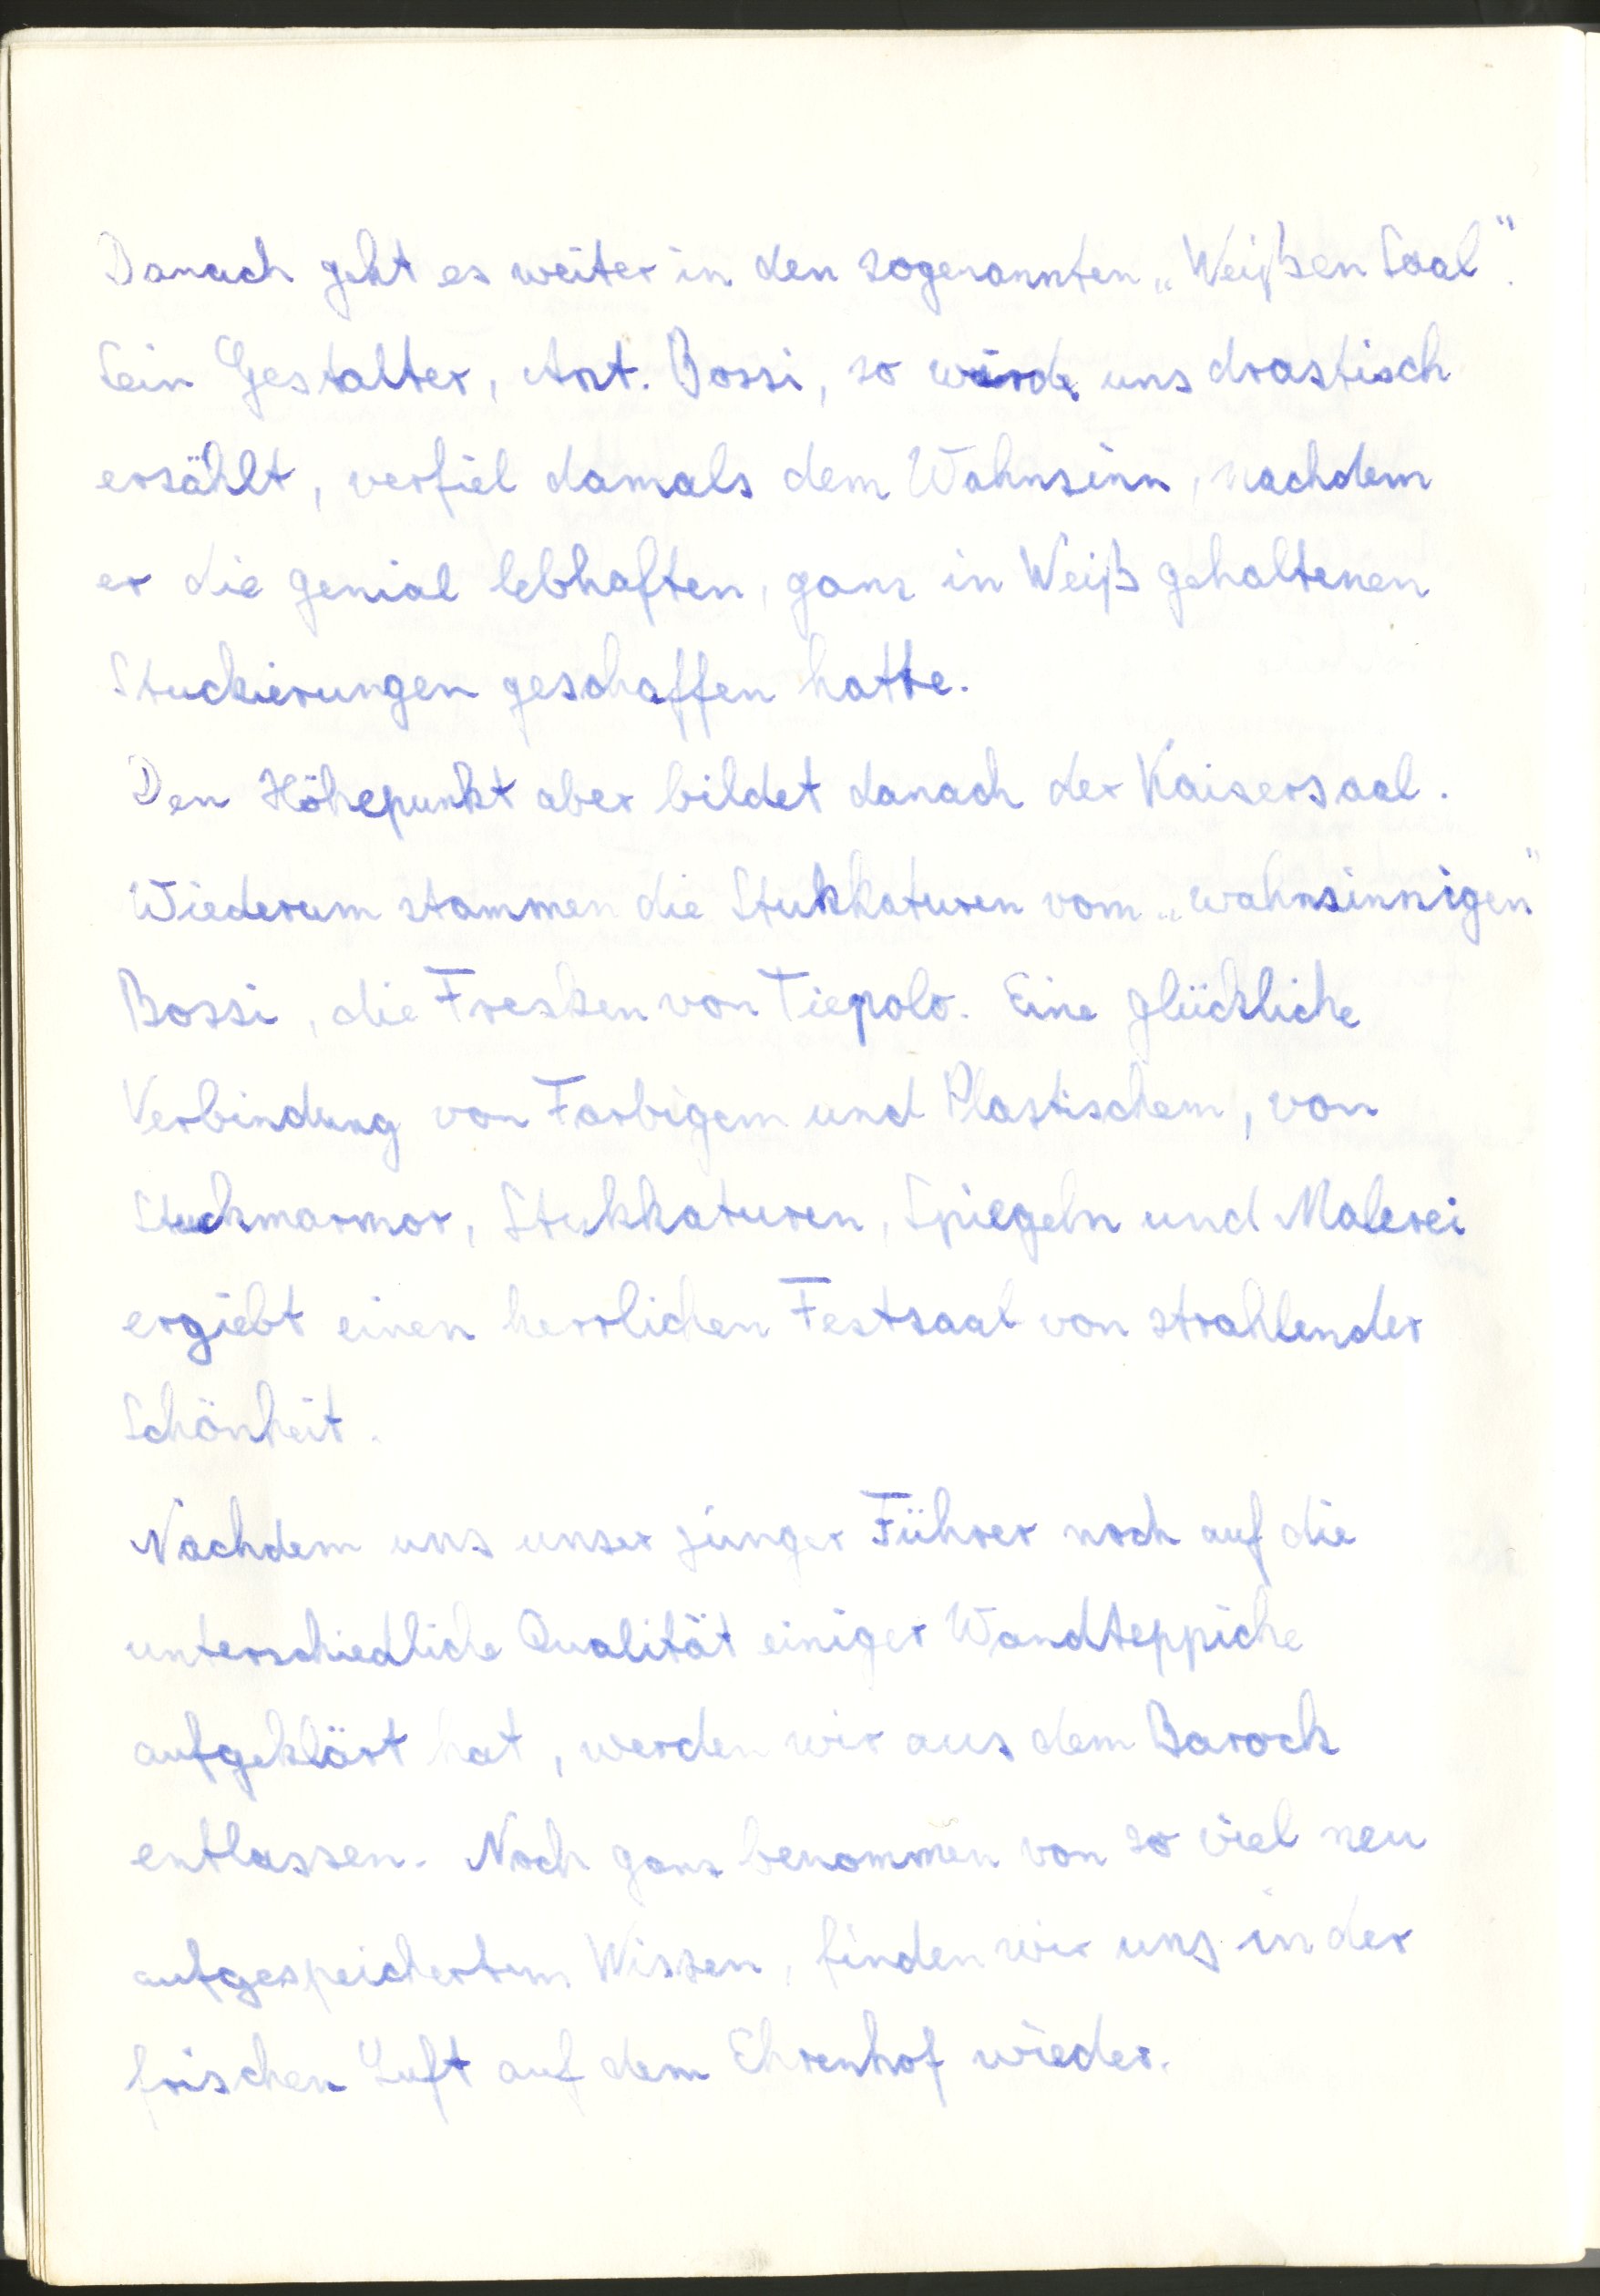 Danach geht es weiter in den sogenannten „Weißen Saal“.
Sein Gestalter, Ant. Bossi, so wurde uns drastisch
erzählt, verfiel damals dem Wahnsinn, nachdem
er die genial lebhaften, ganz in Weiß gehaltenen
Stuckierungen geschaffen hatte.
Den Höhepunkt aber bildet danach der Kaisersaal.
Wiederum stammen die Stukkaturen vom „wahnsinnigen“
Bossi, die Fresken von Tiepolo. Eine glückliche
Verbindung von Farbigem und Plastischem, von
Stuckmarmor, Stukkaturen, Spiegeln und Malerei
ergiebt einen herrlichen Festsaal von strahlender
Schönheit.
Nachdem uns unser junger Führer noch auf die
unterschiedliche Qualität einiger Wandteppiche
aufgeklärt hat, werden wir aus dem Barock
entlassen. Noch ganz benommen von so viel neu
aufgespeichertem Wissen, finden wir uns in der
frischen Luft auf dem Ehrenhof wieder.